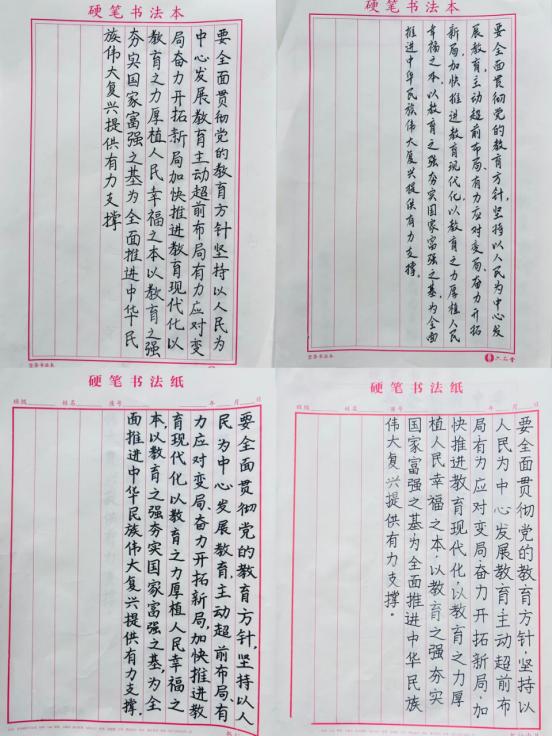 硬笔书法本
要全面贯彻党的教育方针坚持以人民为
中心发展教育主动超前布局有力应对变
局奋力开拓新局加快推进教育现代化以
教育之力厚植人民幸福之本以教育之强
夯实国家富强之基为全面推进中华民
族伟大复兴提供有力支撑
硬笔书法本
要全面贯彻党的教育方针,坚持以人民为中心发
展教育,主动超前布局、有力应对变局、奋力开拓
新局,加快推进教育现代化,以教育之力厚植人民
幸福之本,以教育之强夯实国家富强之基,为全面
推进中华民族伟大复兴提供有力支撑。
六品堂
硬笔书法纸
班级 姓名 座号 年 月 日
要全面贯彻党的教育方针,坚持以人
民为中心发展教育,主动超前布局、有
力应对变局、奋力开拓新局,加快推进教
育现代化,以教育之力厚植人民幸福之
本,以教育之强夯实国家富强之基,为全
面推进中华民族伟大复兴提供有力支撑。
硬笔书法纸
班级 姓名 座号 年 月 日
要全面贯彻党的教育方针,坚持以
人民为中心发展教育,主动超前布
局有为应对变局,奋力开拓新局,加
快推进教育现代化,以教育之力厚
植人民幸福之本,以教育之强夯实
国家富强之基为全面推进中华民族
伟大复兴提供有力支撑。